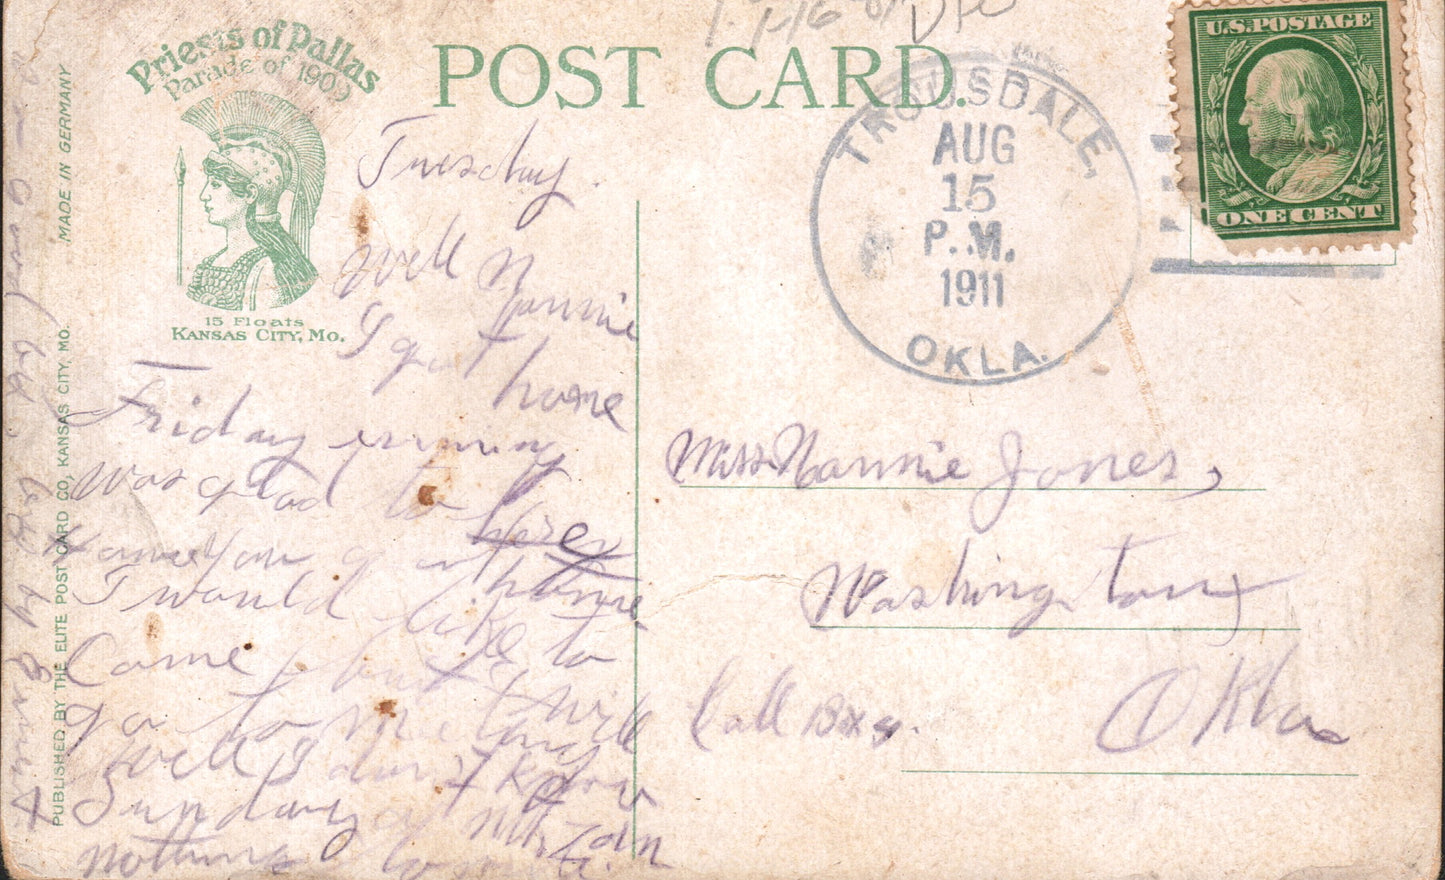 Priests of Pallas
Parade of 1909
15 Floats
KANSAS CITY, MO.
POST CARD.
MADE IN GERMANY
PUBLISHED BY THE ELITE POST CARD CO, KANSAS CITY, MO.
TROUSDALE,
AUG
15
P.M.
1911
OKLA.
U.S. POSTAGE
ONE CENT
Tuesday.
Well Nannie
I got home
Friday evening
was glad to
home
I would like to
Come but I will
go to
well I don't know
Sunday at Mt. Zion
nothing to
Miss Nannie Jones,
Washington
Okla
Call Box
by